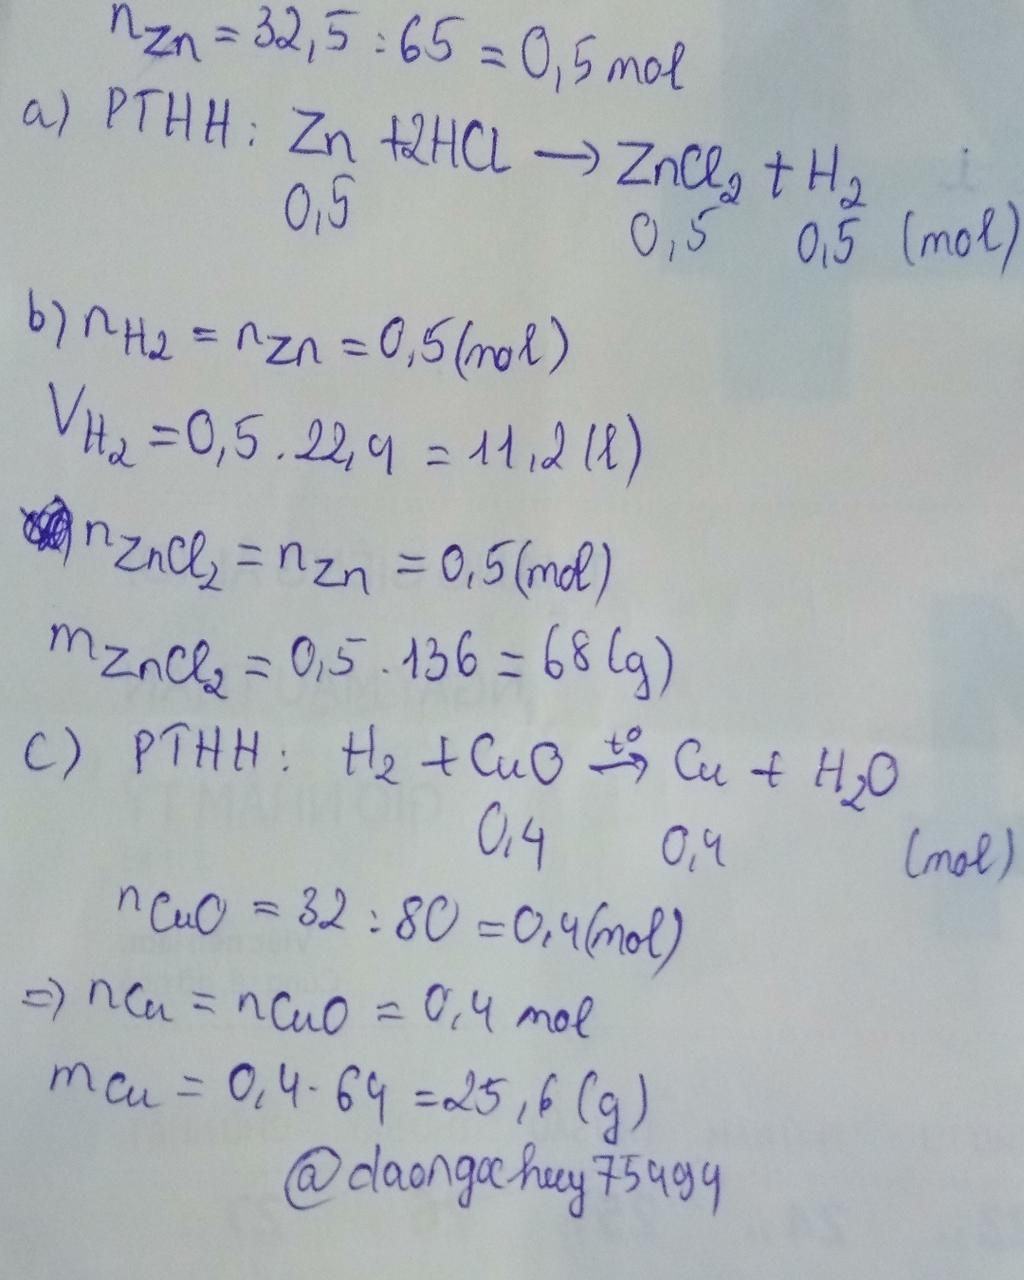 nZn = 32,5 : 65 = 0,5 mol
a) PTHH : Zn +2HCl → ZnCl2 + H2
0,5 0,5 0,5 (mol)
b) nH2 = nZn = 0,5 (mol)
VH2 = 0,5 . 22,4 = 11,2 (l)
nZnCl2 = nZn = 0,5 (mol)
mZnCl2 = 0,5 . 136 = 68 (g)
c) PTHH : H2 + CuO t°→ Cu + H2O
0,4 0,4 (mol)
nCuO = 32 : 80 = 0,4 (mol)
=) nCu = nCuO = 0,4 mol
mCu = 0,4 . 64 = 25,6 (g)
@daongochuy75494